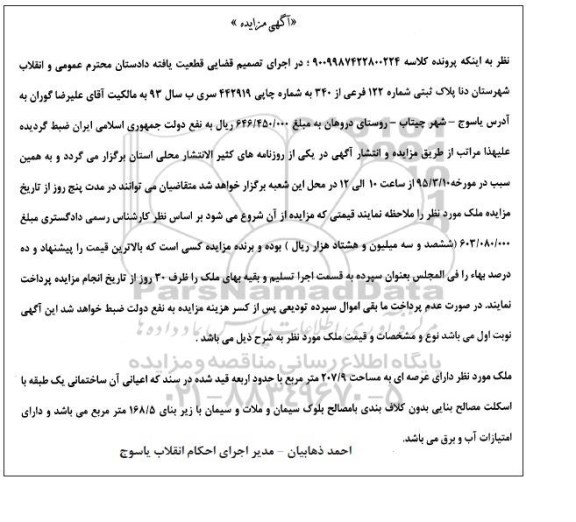 «آگهی مزایده »
نظر به اینکه پرونده کلاسه ۹۰۰۹۹۸۷۴۲۲۸۰۰۲۲۴ ؛ در اجرای تصمیم قضایی قطعیت یافته دادستان محترم عمومی و انقلاب
شهرستان دنا پلاک ثبتی شماره ۱۲۲ فرعی از ۳۴۰ به شماره چاپی ۴۴۲۹۱۹ سری ب سال ۹۳ به مالکیت آقای علیرضا گوران به
آدرس یاسوج – شهر چیتاب – روستای دروهان به مبلغ ۶۴۶/۴۵۰/۰۰۰ ریال به نفع دولت جمهوری اسلامی ایران ضبط گردیده
علیهذا مراتب از طریق مزایده و انتشار آگهی در یکی از روزنامه های کثیر الانتشار محلی استان برگزار می گردد و به همین
سبب در مورخه ۹۵/۳/۱۰ از ساعت ۱۰ الی ۱۲ در محل این شعبه برگزار خواهد شد متقاضیان می توانند در مدت پنج روز از تاریخ
مزایده ملک مورد نظر را ملاحظه نمایند قیمتی که مزایده از آن شروع می شود بر اساس نظر کارشناس رسمی دادگستری مبلغ
۶۰۳/۰۸۰/۰۰۰ (ششصد و سه میلیون و هشتاد هزار ریال ) بوده و برنده مزایده کسی است که بالاترین قیمت را پیشنهاد و ده
درصد بهاء را فی المجلس بعنوان سپرده به قسمت اجرا تسلیم و بقیه بهای ملک را ظرف ۳۰ روز از تاریخ انجام مزایده پرداخت
نمایند. در صورت عدم پرداخت ما بقی اموال سپرده تودیعی پس از کسر هزینه مزایده به نفع دولت ضبط خواهد شد این آگهی
نوبت اول می باشد نوع و مشخصات و قیمت ملک مورد نظر به شرح ذیل می باشد .
ParsNamadData
پایگاه اطلاع رسانی مناقصه و مزایده
ملک مورد نظر دارای عرصه ای به مساحت ۲۰۷/۹ متر مربع با حدود اربعه قید شده در سند که اعیانی آن ساختمانی یک طبقه با
۰۲۱-۸۸۳۴۹۶۷۰-۵
اسکلت مصالح بنایی بدون کلاف بندی بامصالح بلوک سیمان و ملات و سیمان با زیر بنای ۱۶۸/۵ متر مربع می باشد و دارای
امتیازات آب و برق می باشد.
احمد ذهابیان – مدیر اجرای احکام انقلاب یاسوج